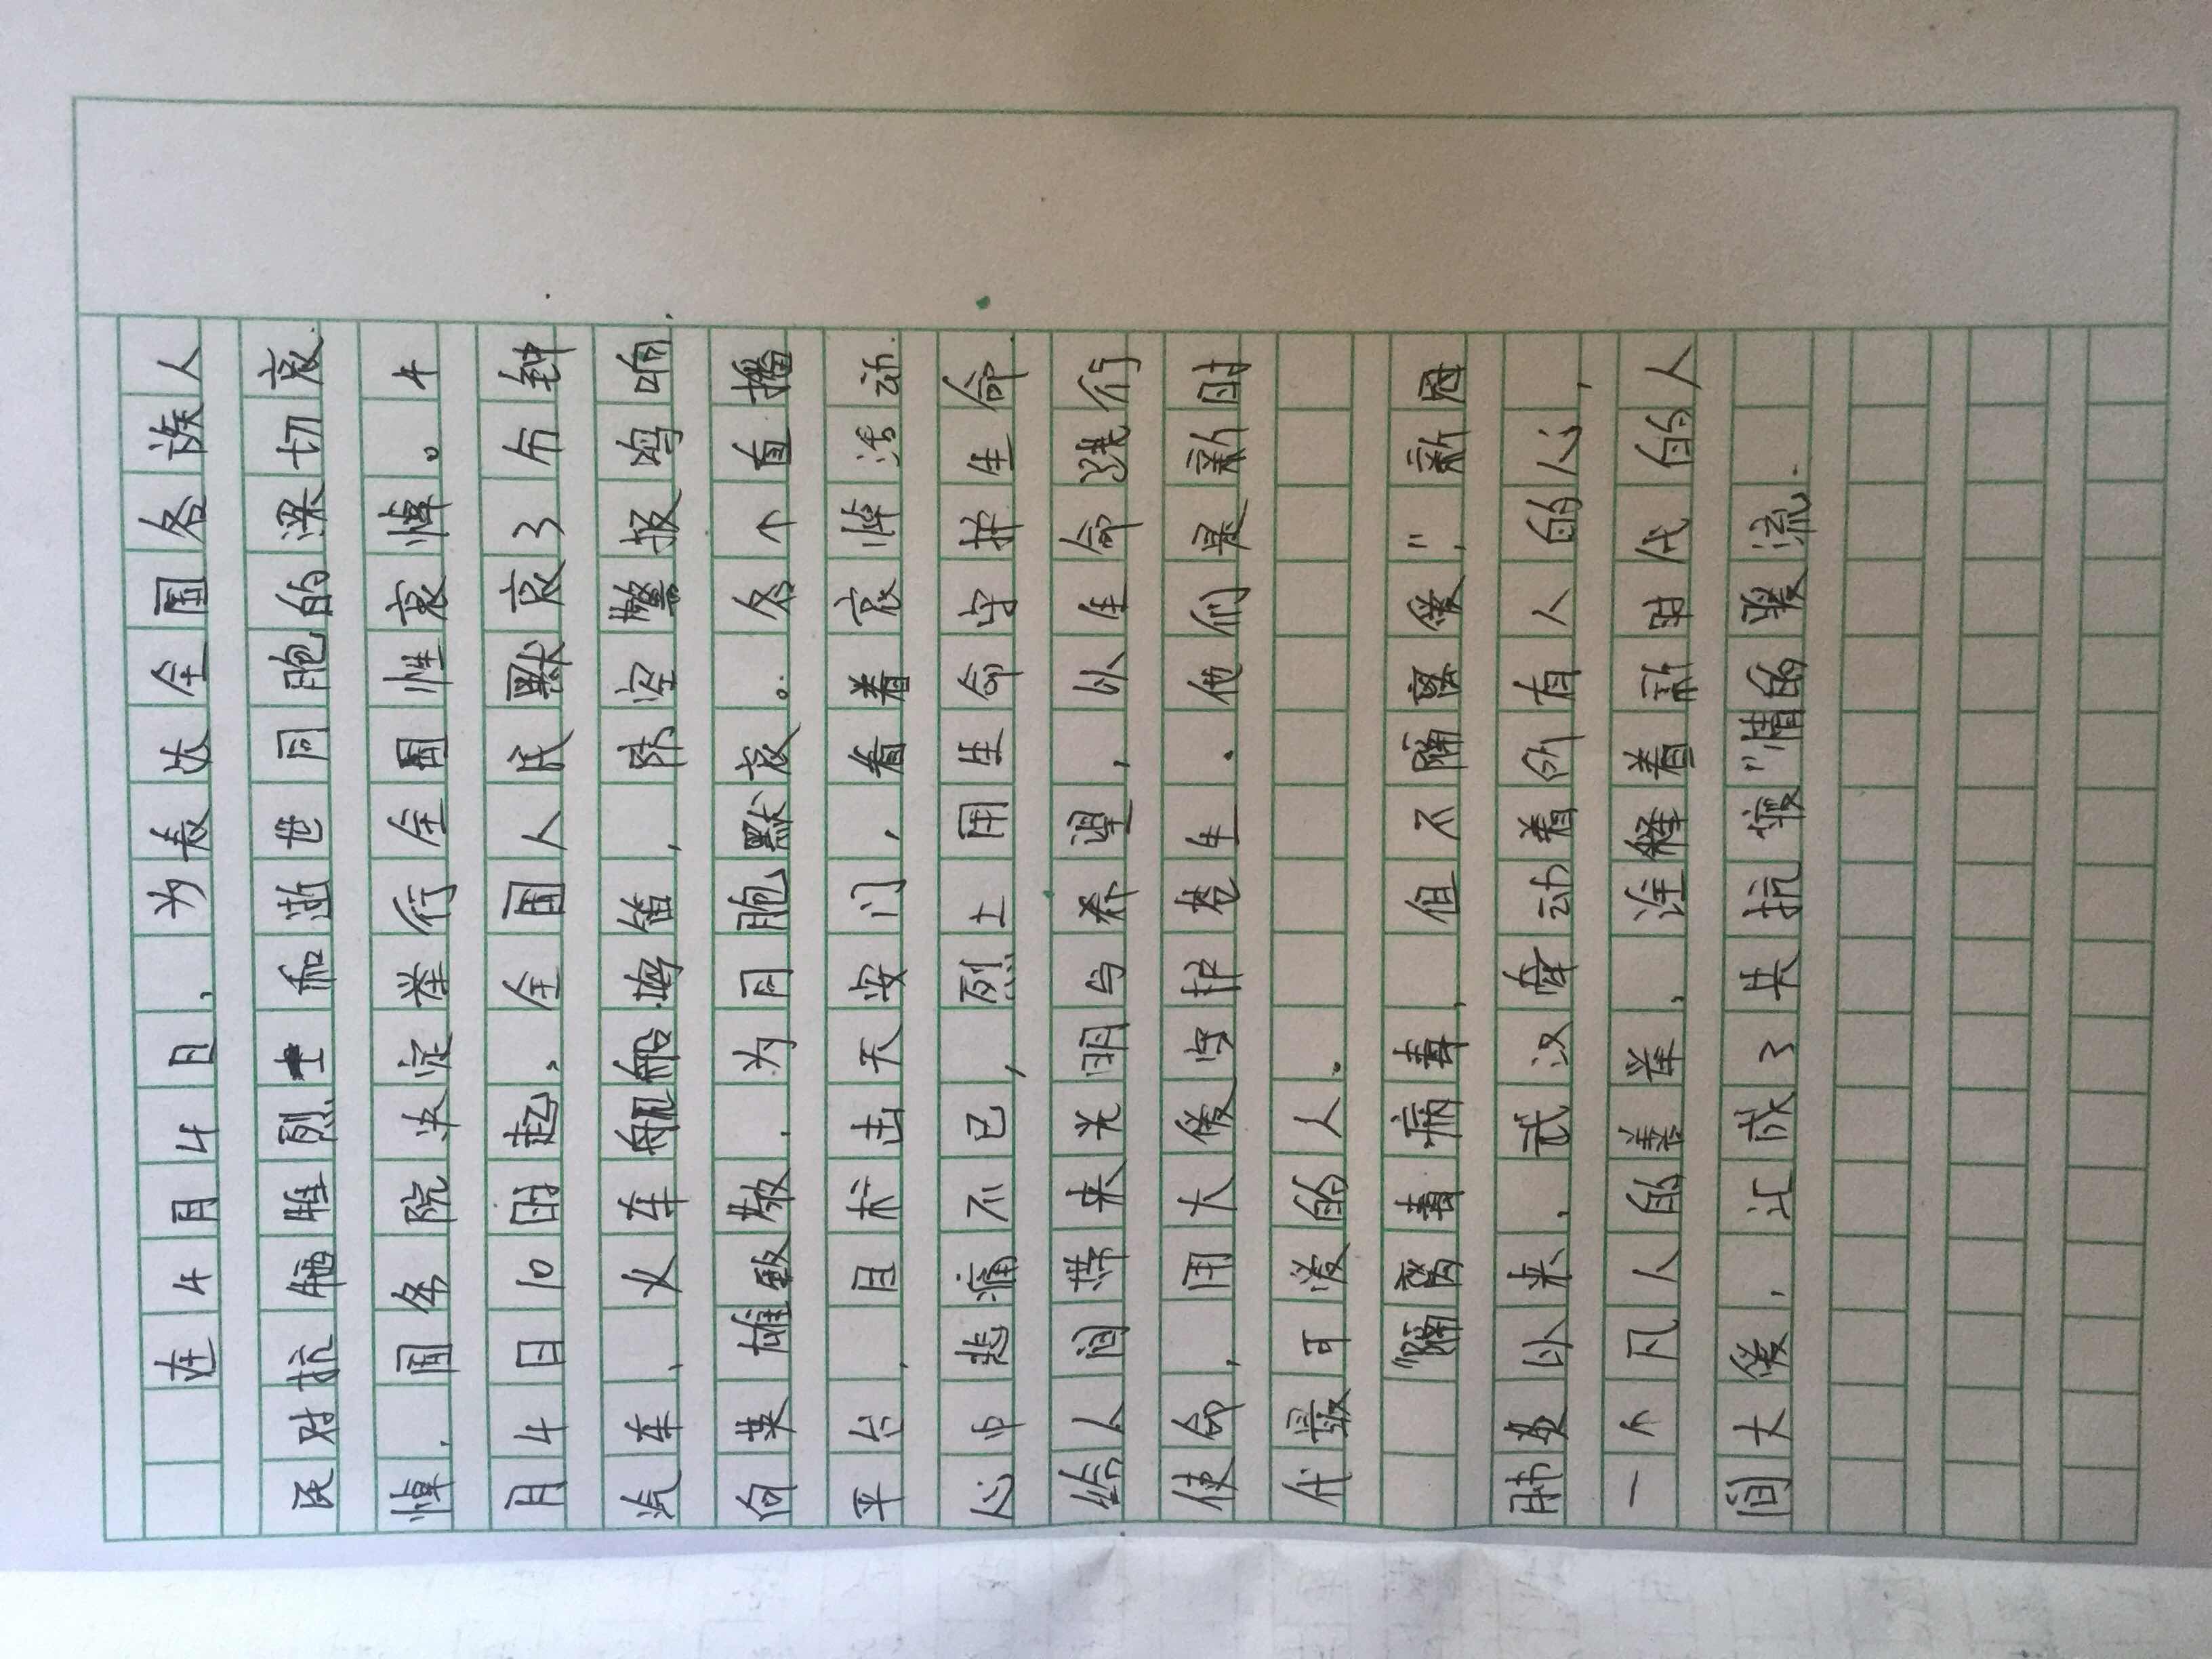 在4月4日，为表达全国各族人
民对抗牺牲烈士和逝世同胞的深切哀
悼，国务院决定举行全国性哀悼。4
月4日10时起，全国人民默哀3分钟，
汽车、火车舰船鸣笛，防空警报鸣响，
向英雄致敬，为同胞默哀。各个直播
平台，目标击天安门，看着哀悼活动，
心中悲痛不已，烈士用生命守护生命，
给人间带来光明与希望，以生命践行
使命，用大爱守护苍生。他们是新时
代最可爱的人。
“隔离毒病毒，但不隔离爱”，新冠
肺炎以来，武汉牵动着所有人的心，
一个凡人的善举，诠释着新时代的人
间大爱，汇成了共抗疫”情的暖流．